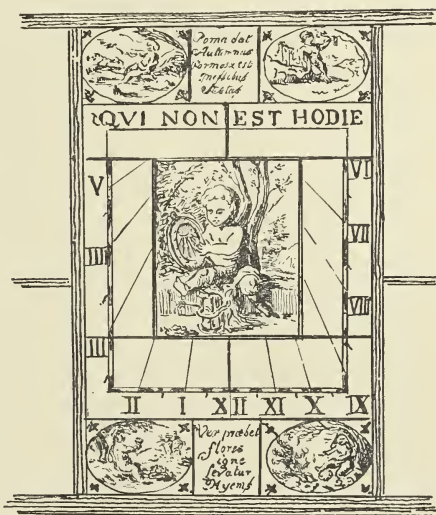 Poma dat
Autumnus
Formosa est
Messibus
Æstas
QVI NON EST HODIE
V VI
IIII VII
III VIII
II I XII XI X IX
Ver præbet
flores
igne
levatur
Hyems